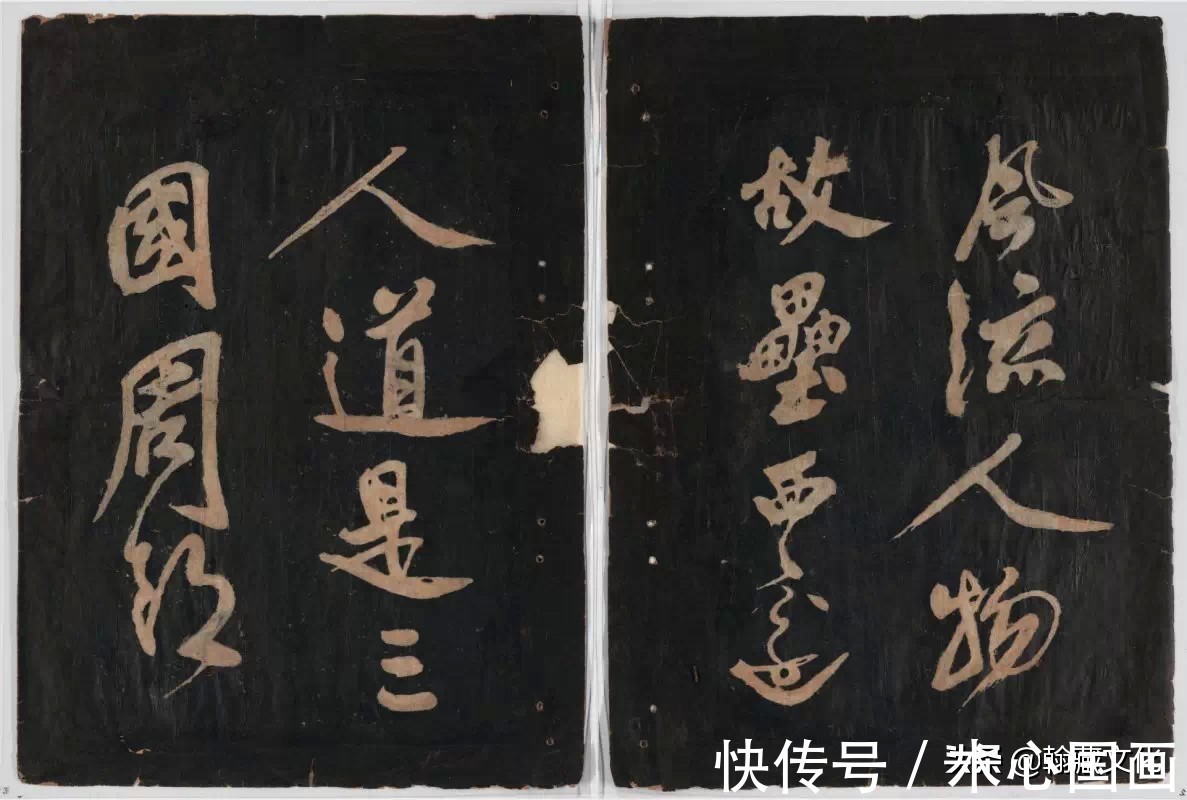 風流人物
故壘西邊
人道是三
國周郎
快传号/米心图画
@翰藏文化